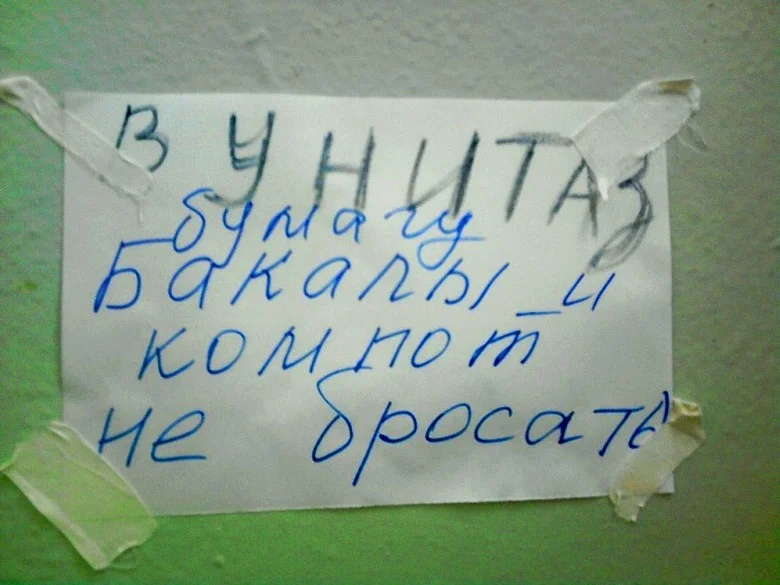 В УНИТАЗ
бумагу
Бакалы_и
компот
не бросать